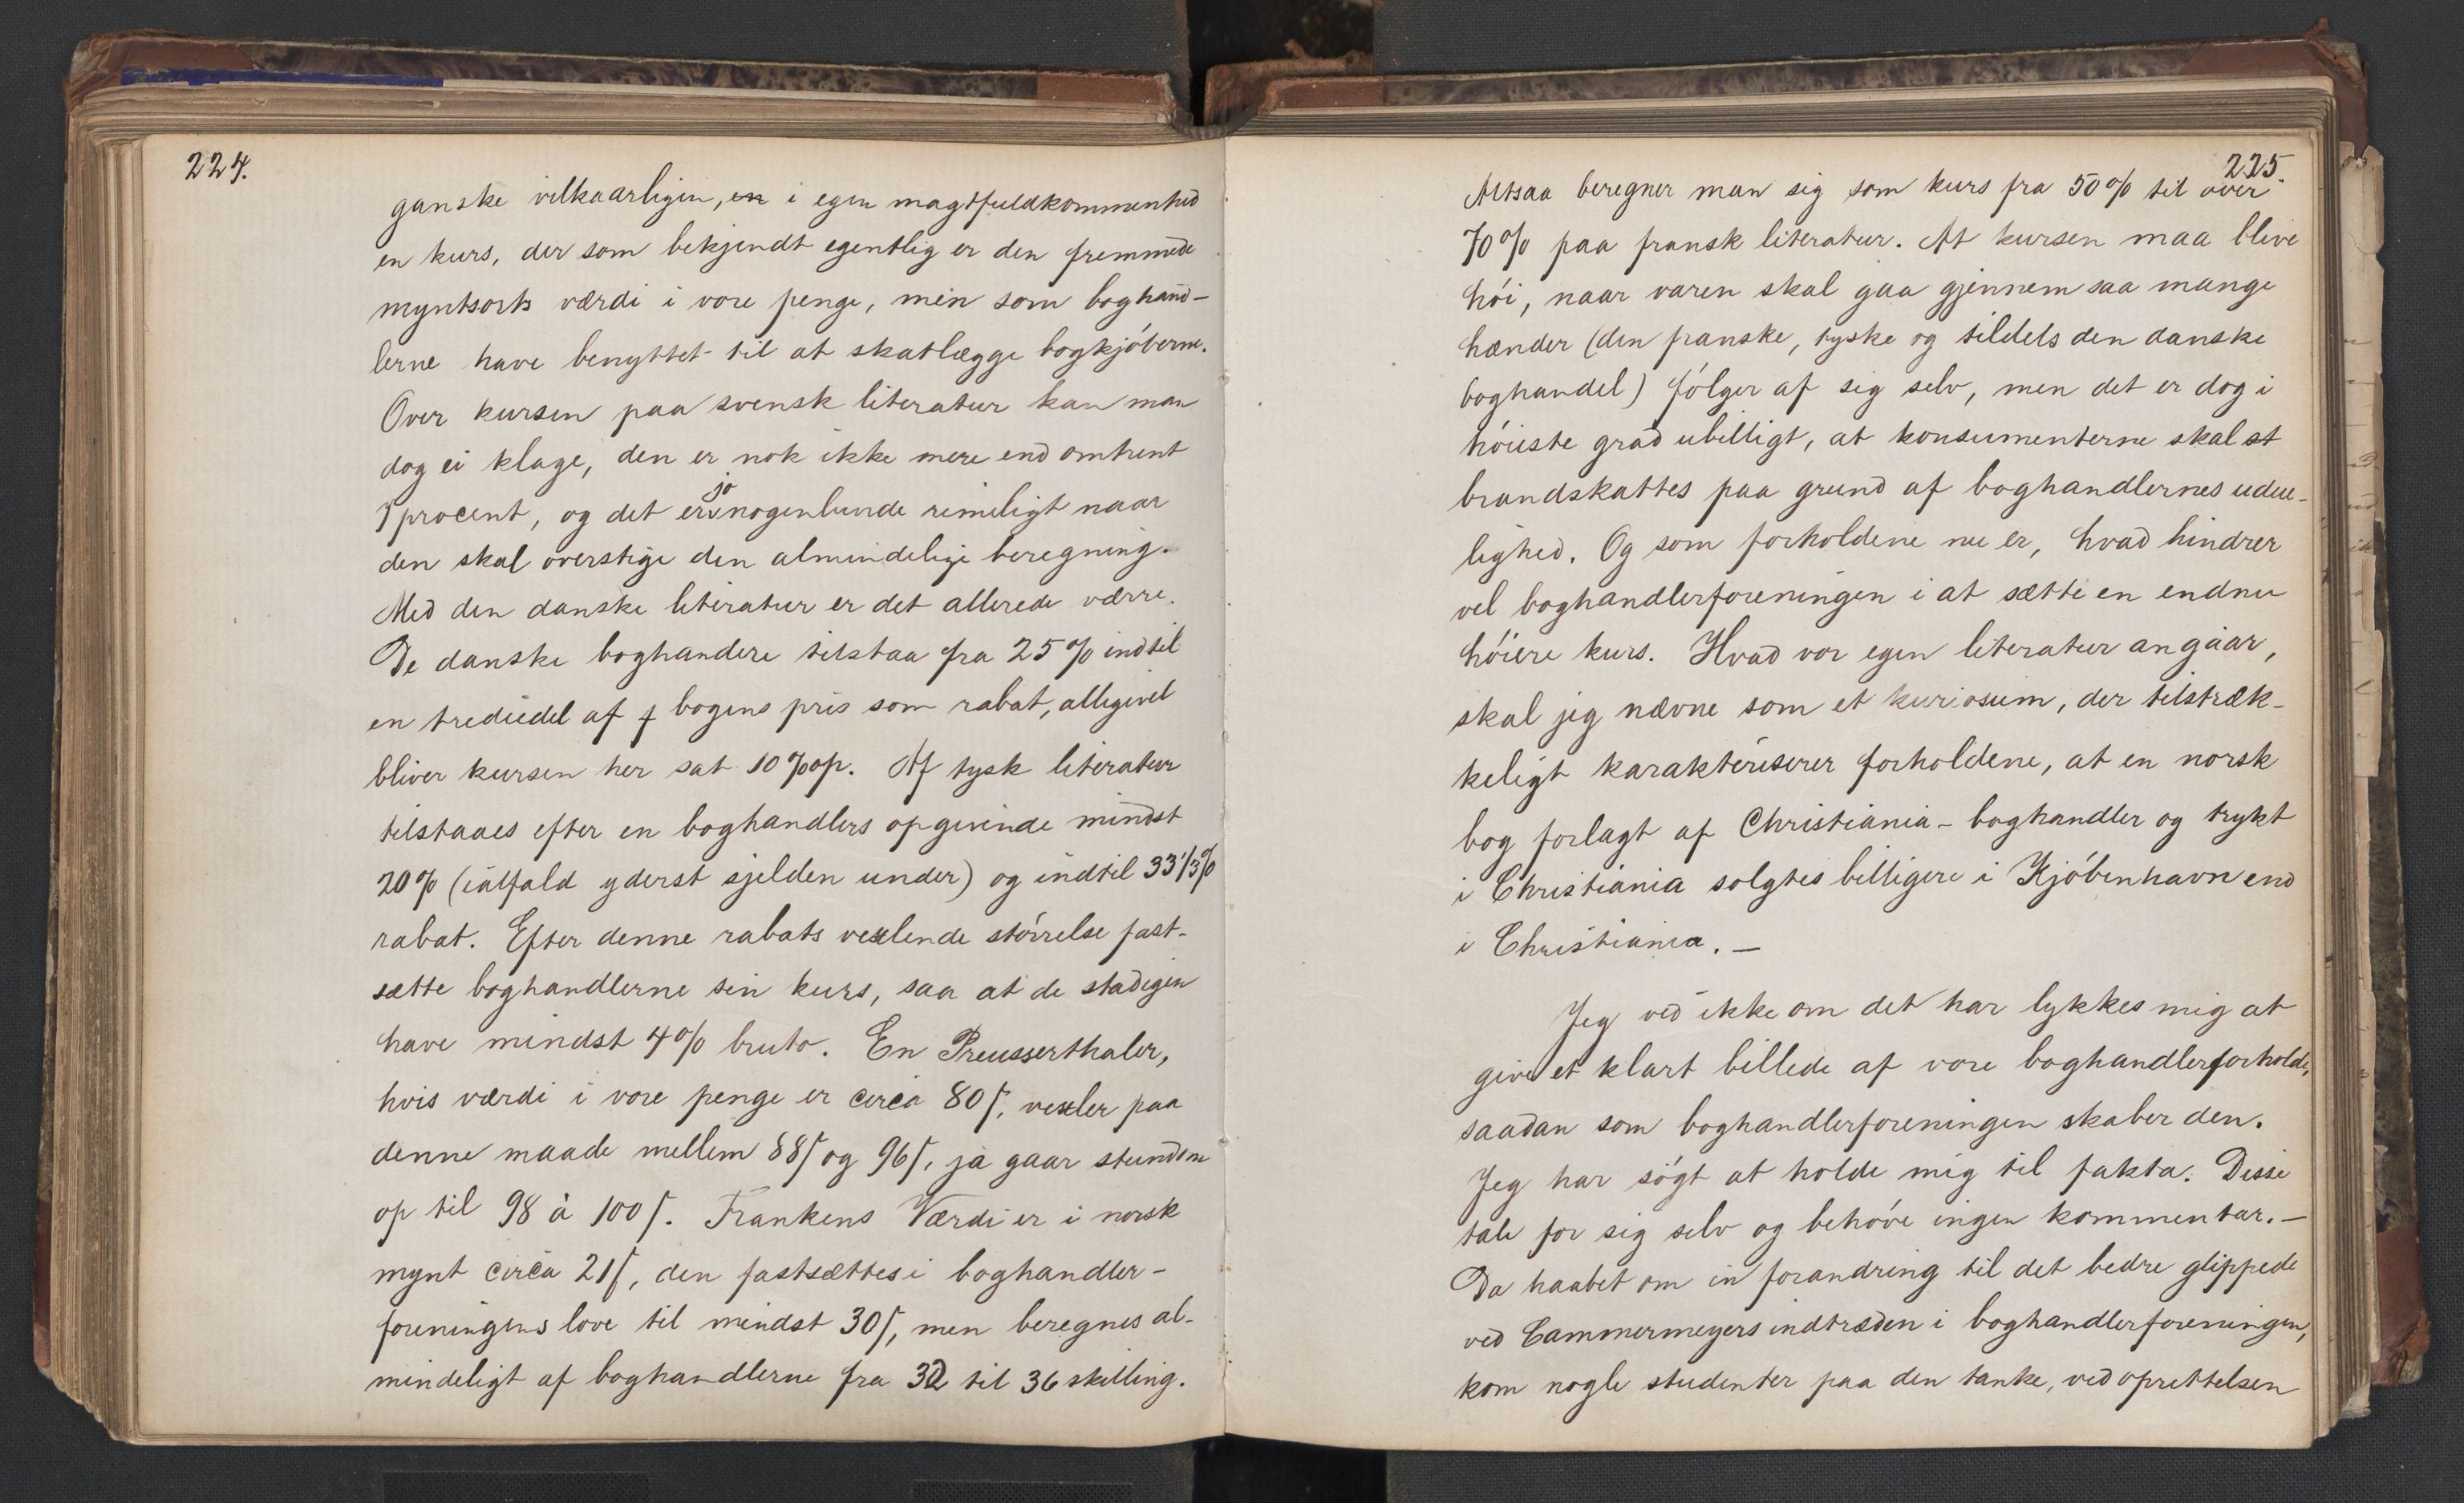 224.
ganske vilkaarligen, en i egen magtfuldkommenhed
en kurs, der som bekjendt egentlig er den fremmede
myntsorts værdi i vore penge, men som boghand-
lerne have benyttet til at skatlægge bogkjøberne.
Over kursen paa svensk literatur kan man
dog ei klage, den er nok ikke mere end omtrent
procent, og det er jo nogenlunde rimeligt naar
den skal overstige den almindelige beregning.
Med den danske literatur er det allerede værre.
De danske boghandere tilstaa fra 25% indtil
en trediedel af bogens pris som rabat, alligevel
bliver kursen her sat 10% op. Af tysk literatur
tilstaaes efter en boghandlers opgivende mindst
20% (ialfald yderst sjelden under) og indtil 33 1/3%
rabat. Efter denne rabats vexlende størrelse fast-
sætte boghandlerne sin kurs, saa at de stadigen
have mindst 4% bruto. En Preusserthaler,
hvis værdi i vore penge er circa 80 ſ, vexler paa
denne maade mellem 88 ſ og 96 ſ, ja gaar stundom
op til 98 à 100 ſ. Frankens Værdi er i norsk
mynt circa 21 ſ, den fastsættes i boghandler-
foreningens love til mindst 30 ſ, men beregnes al-
mindeligt af boghandlerne fra 32 til 36 skilling.
225.
Altsaa beregner man sig som kurs fra 50% til over
70% paa fransk literatur. At kursen maa blive
høi, naar varen skal gaa gjennem saa mange
hænder (den franske, tyske og tildels den danske
boghandel) følger af sig selv, men det er dog i
høieste grad ubilligt, at konsumenterne skal st
brandskattes paa grund af boghandlernes udue-
lighed. Og som forholdene nu er, hvad hindrer
vel boghandlerforeningen i at sætte en endnu
høiere kurs. Hvad vor egen literatur angaar,
skal jeg nævne som et kuriosum, der tilstræk-
keligt karakteriserer forholdene, at en norsk
bog forlagt af Christiania-boghandler og trykt
i Christiania solgtes billigere i Kjøbenhavn end
i Christiania. —
Jeg ved ikke om det har lykkes mig at
give et klart billede af vore boghandlerforholde,
saadan som boghandlerforeningen skaber den.
Jeg har søgt at holde mig til fakta. Disse
tale for sig selv og behøve ingen kommentar. —
Da haabet om en forandring til det bedre glippede
ved Cammermeyers indtræden i boghandlerforeningen,
kom nogle studenter paa den tanke, ved oprettelsen